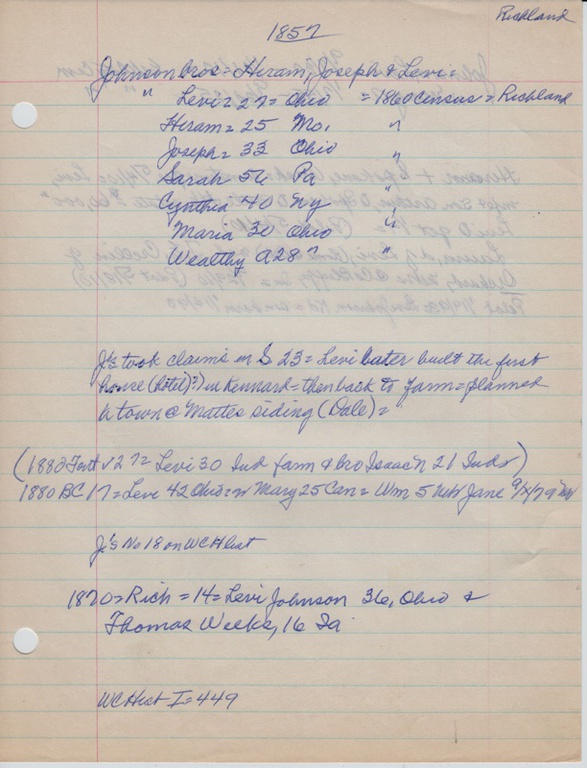 Richland
1857
Johnson bros = Hiram, Joseph & Levi =
" Levi = 27 = Ohio = 1860 census = Richland
Hiram = 25 Mo. "
Joseph = 33 Ohio "
Sarah 56 Pa "
Cynthia 40 NY "
Maria 30 Ohio "
Wealthy A 28 " "
J's took claims in S 23 = Levi later built the first
house (hotel?) in Kennard - then back to farm = planned
a town @ Mattes siding (Dale) =
(1880 Font v 27 = Levi 30 Ind farm & bro Isaac 21 Ind)
1880 BC 17 = Levi 42 Ohio = w Mary 25 Can = Wm 5 Neb Jane 9/x/79
J's No 18 on WCHist
1870 = Rich = 14 = Levi Johnson 36, Ohio &
Thomas Weeks, 16 Ia
WCHist I = 449